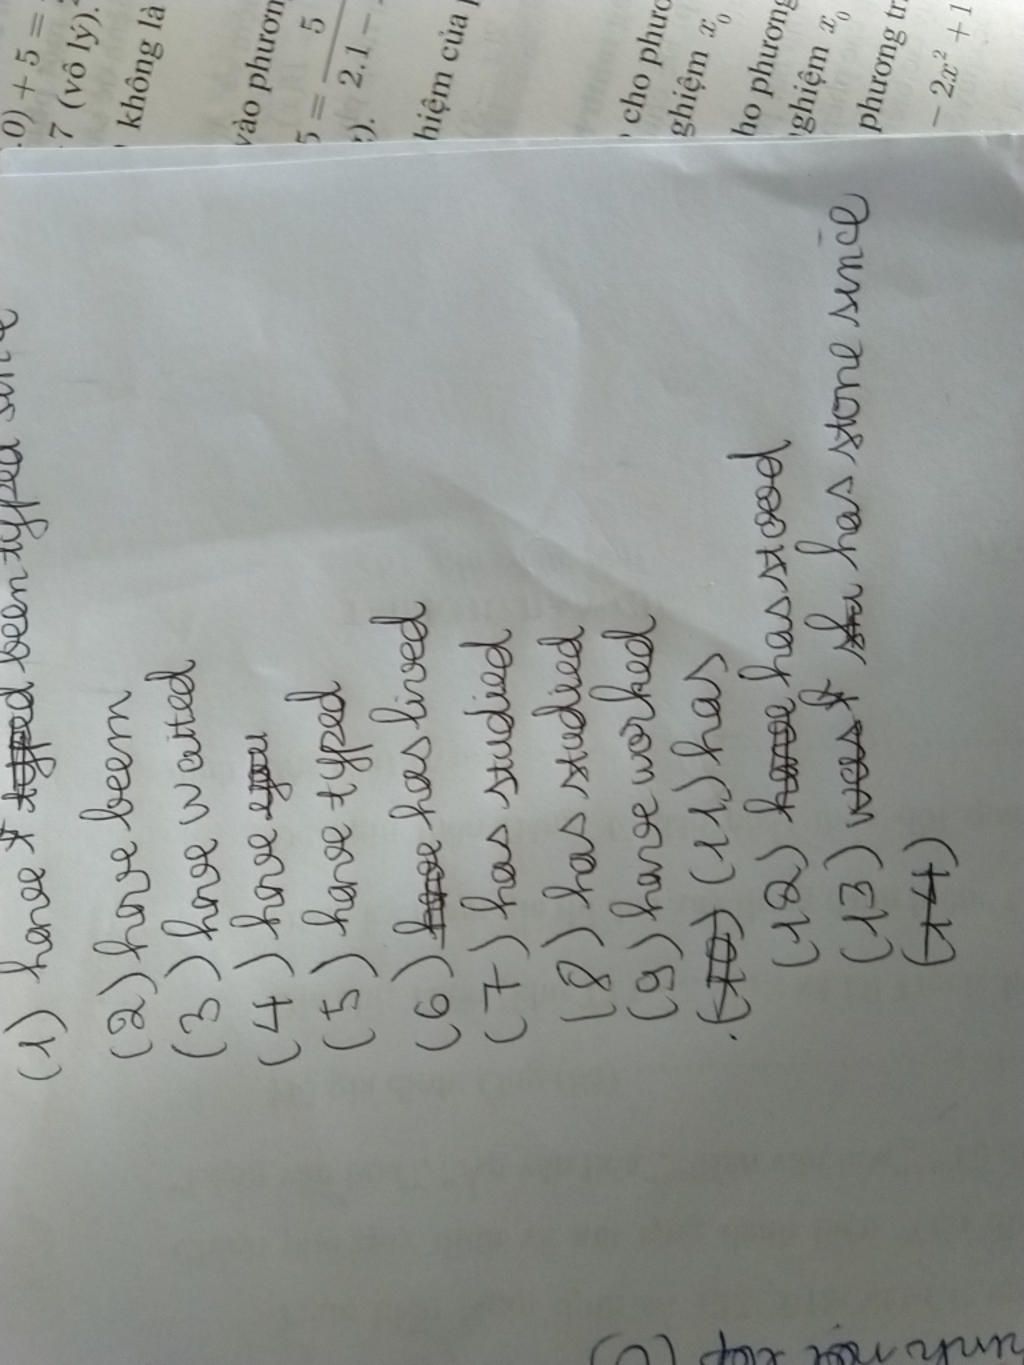 .0) + 5 =
7 (vô lý).
không là
vào phươn
5 = 5 / 2.1 −
hiệm của
cho phươ
ghiệm x₀
ho phương
ghiệm x₀
phương tr
− 2x² + 1
(1) have typed been typed since
(2) have been
(3) have waited
(4) have
(5) have typed
(6) have has lived
(7) has studied
(8) has studied
(9) have worked
(10) (11) has
(12) have has stood
(13) was sta has stone since
(14)